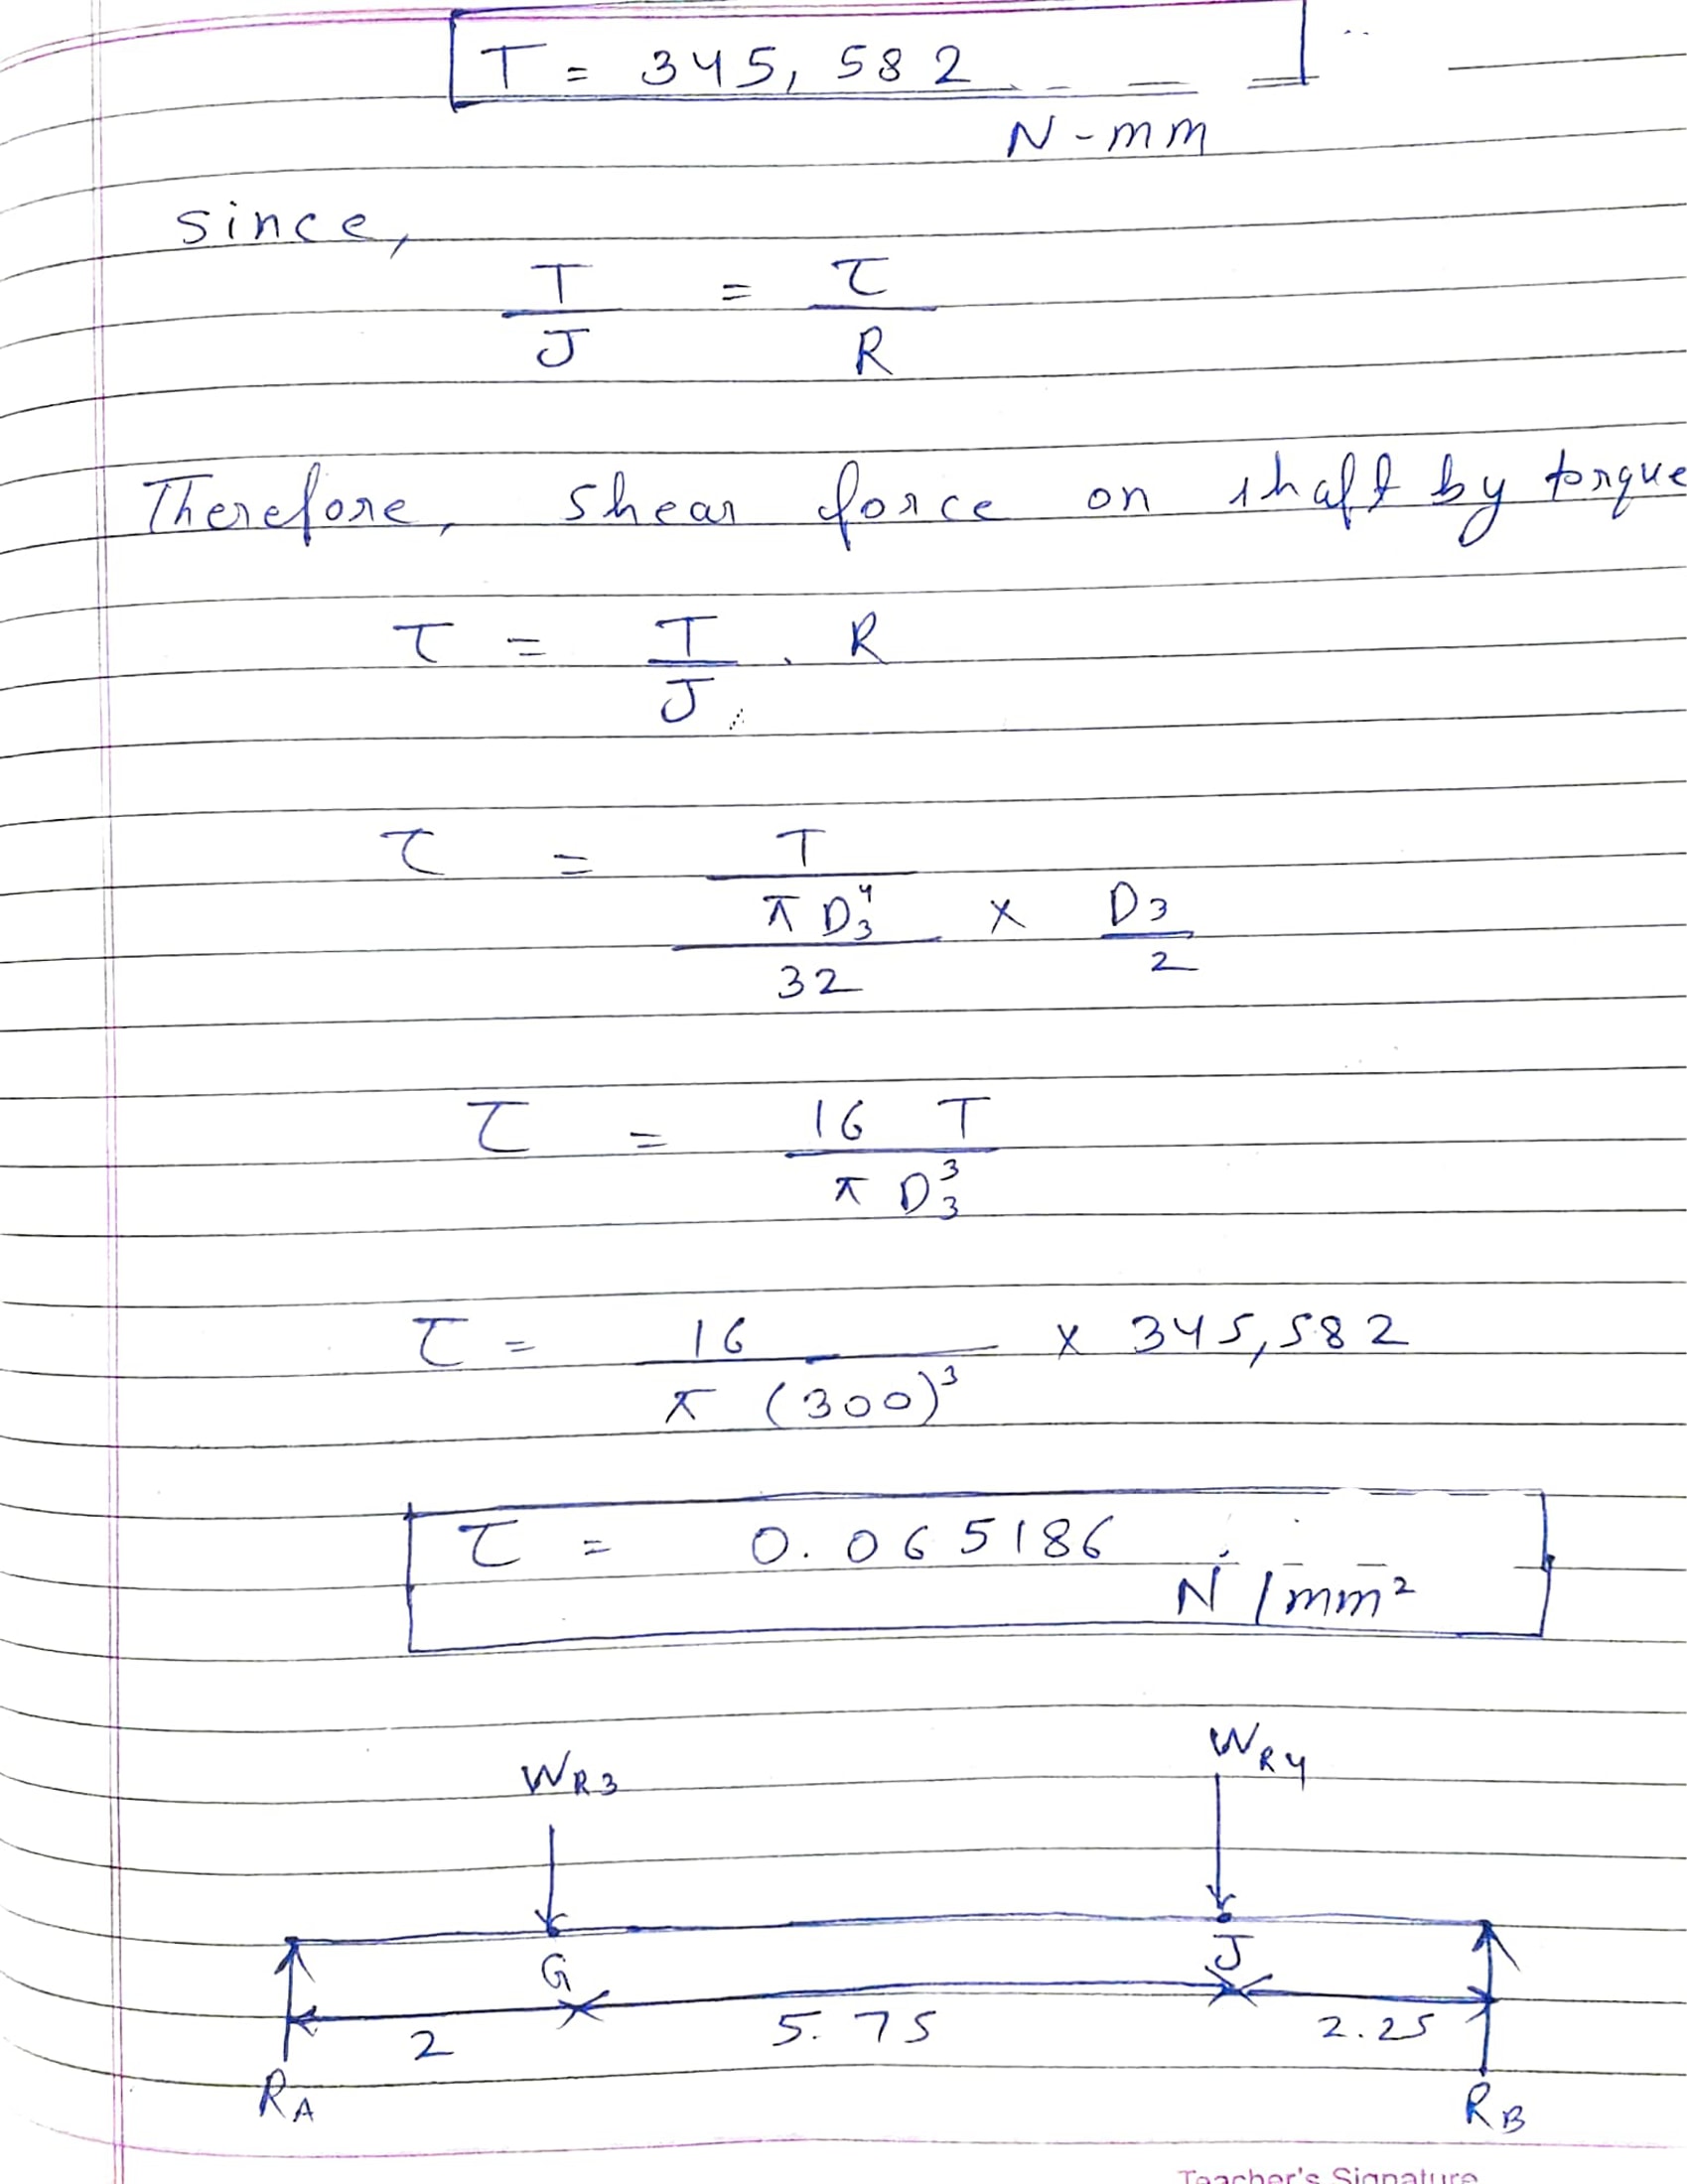 T = 345,582
N-mm
Since,
T/J = τ/R
Therefore, shear force on shaft by torque
τ = T/J . R
τ = T/(πD₃⁴/32) × D₃/2
τ = 16 T/(π D₃³)
τ = 16/(π (300)³) × 345,582
τ = 0.065186
N/mm²
WR3 WR4
G J
2 5.75 2.25
RA RB
Teacher's Signature